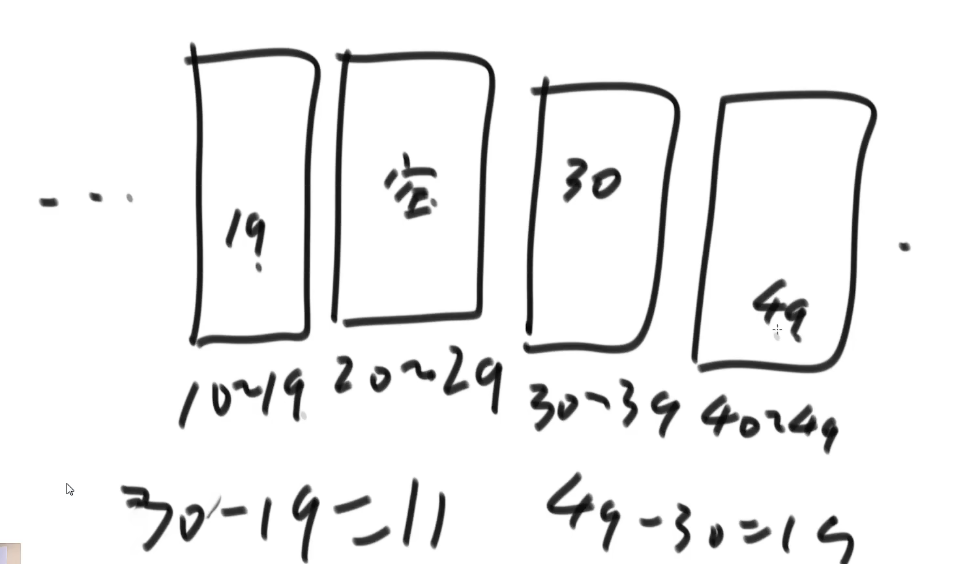 19 空 30 49
10~19 20~29 30~39 40~49
30-19=11 49-30=19